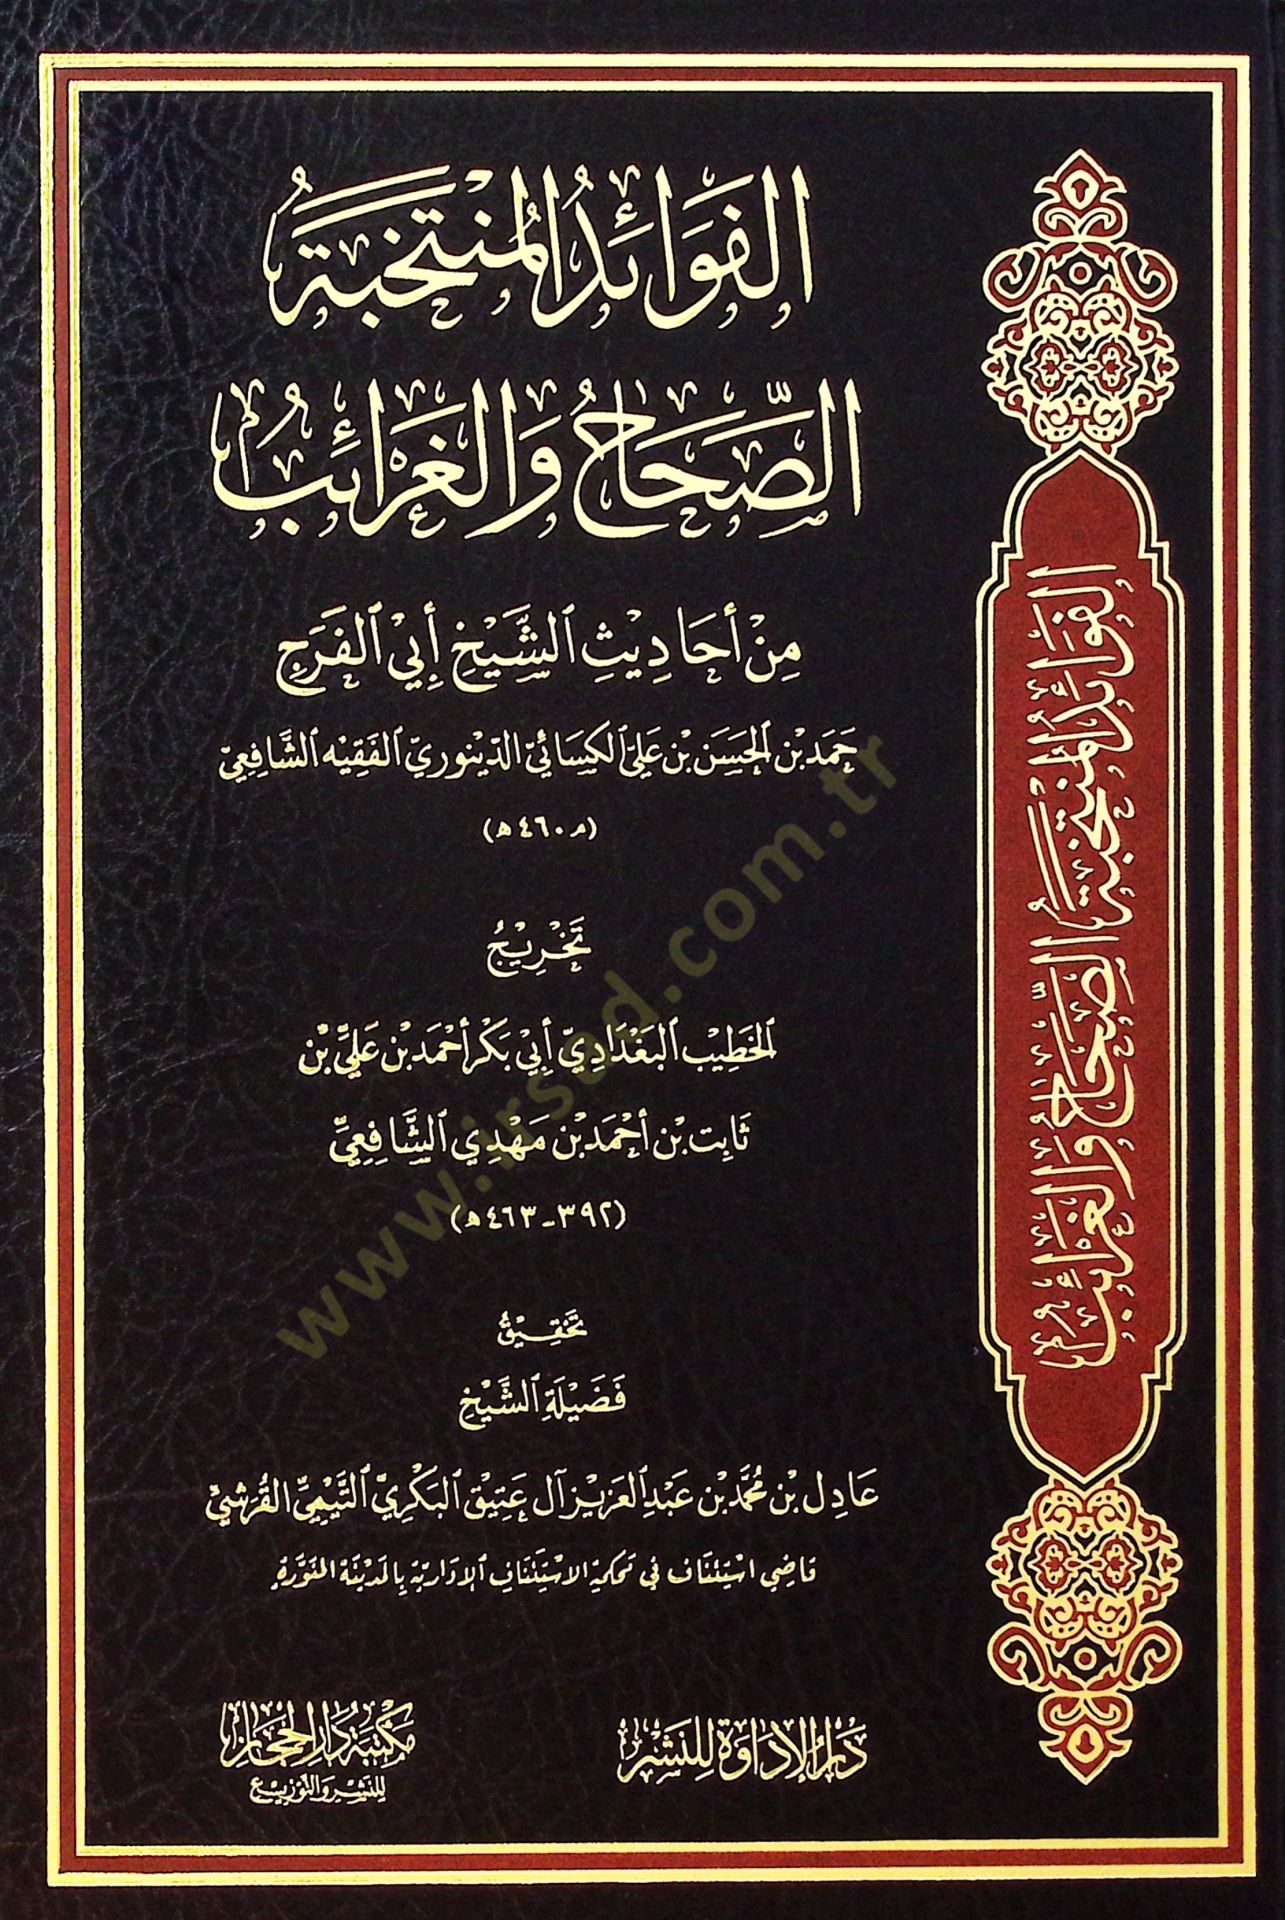 الفَوَائِدُ المُنْتَخَبَةُ
الصِّحَاحُ وَالغَرَائِبُ
مِنْ أَحَادِيْثِ الشَّيْخِ أَبِي الفَرَجِ
حَمَد بْن الحَسَن بْن عَلِيّ الكِسَائيّ الدِّينوريّ الفَقِيْه الشَّافِعِيّ
(م ٤٦٠ هـ)
تَخْرِيْجُ
الخَطِيْب البَغْدَادِيّ أَبِيْ بَكْر أَحْمَد بْن عَلِيِّ بْن
ثَابِت بْن أَحْمَد بْن مَهْدِي الشَّافِعِيِّ
(٣٩٢ - ٤٦٣ هـ)
تَحْقِيْقُ
فَضِيْلَةِ الشَّيْخِ
عَادِل بْن مُحَمَّد بْن عَبْدِ العَزِيْز آل عَتِيْق البَكْرِيِّ التَّيْمِيِّ القُرَشِيِّ
قَاضِي اسْتِئْنَاف فِي مَحْكَمَةِ الاسْتِئْنَافِ الإدَارِيَّة بِالمَدِيْنَة المُنَوَّرَة
دَارُ الإِدَاوَةِ لِلنَّشْرِ
مَكْتَبَة دَار الحِجَاز
لِلنَّشْرِ وَالتَّوْزِيْع
الفَوَائِدُ المُنْتَخَبَةُ الصِّحَاحُ وَالغَرَائِبُ
www.irsad.com.tr